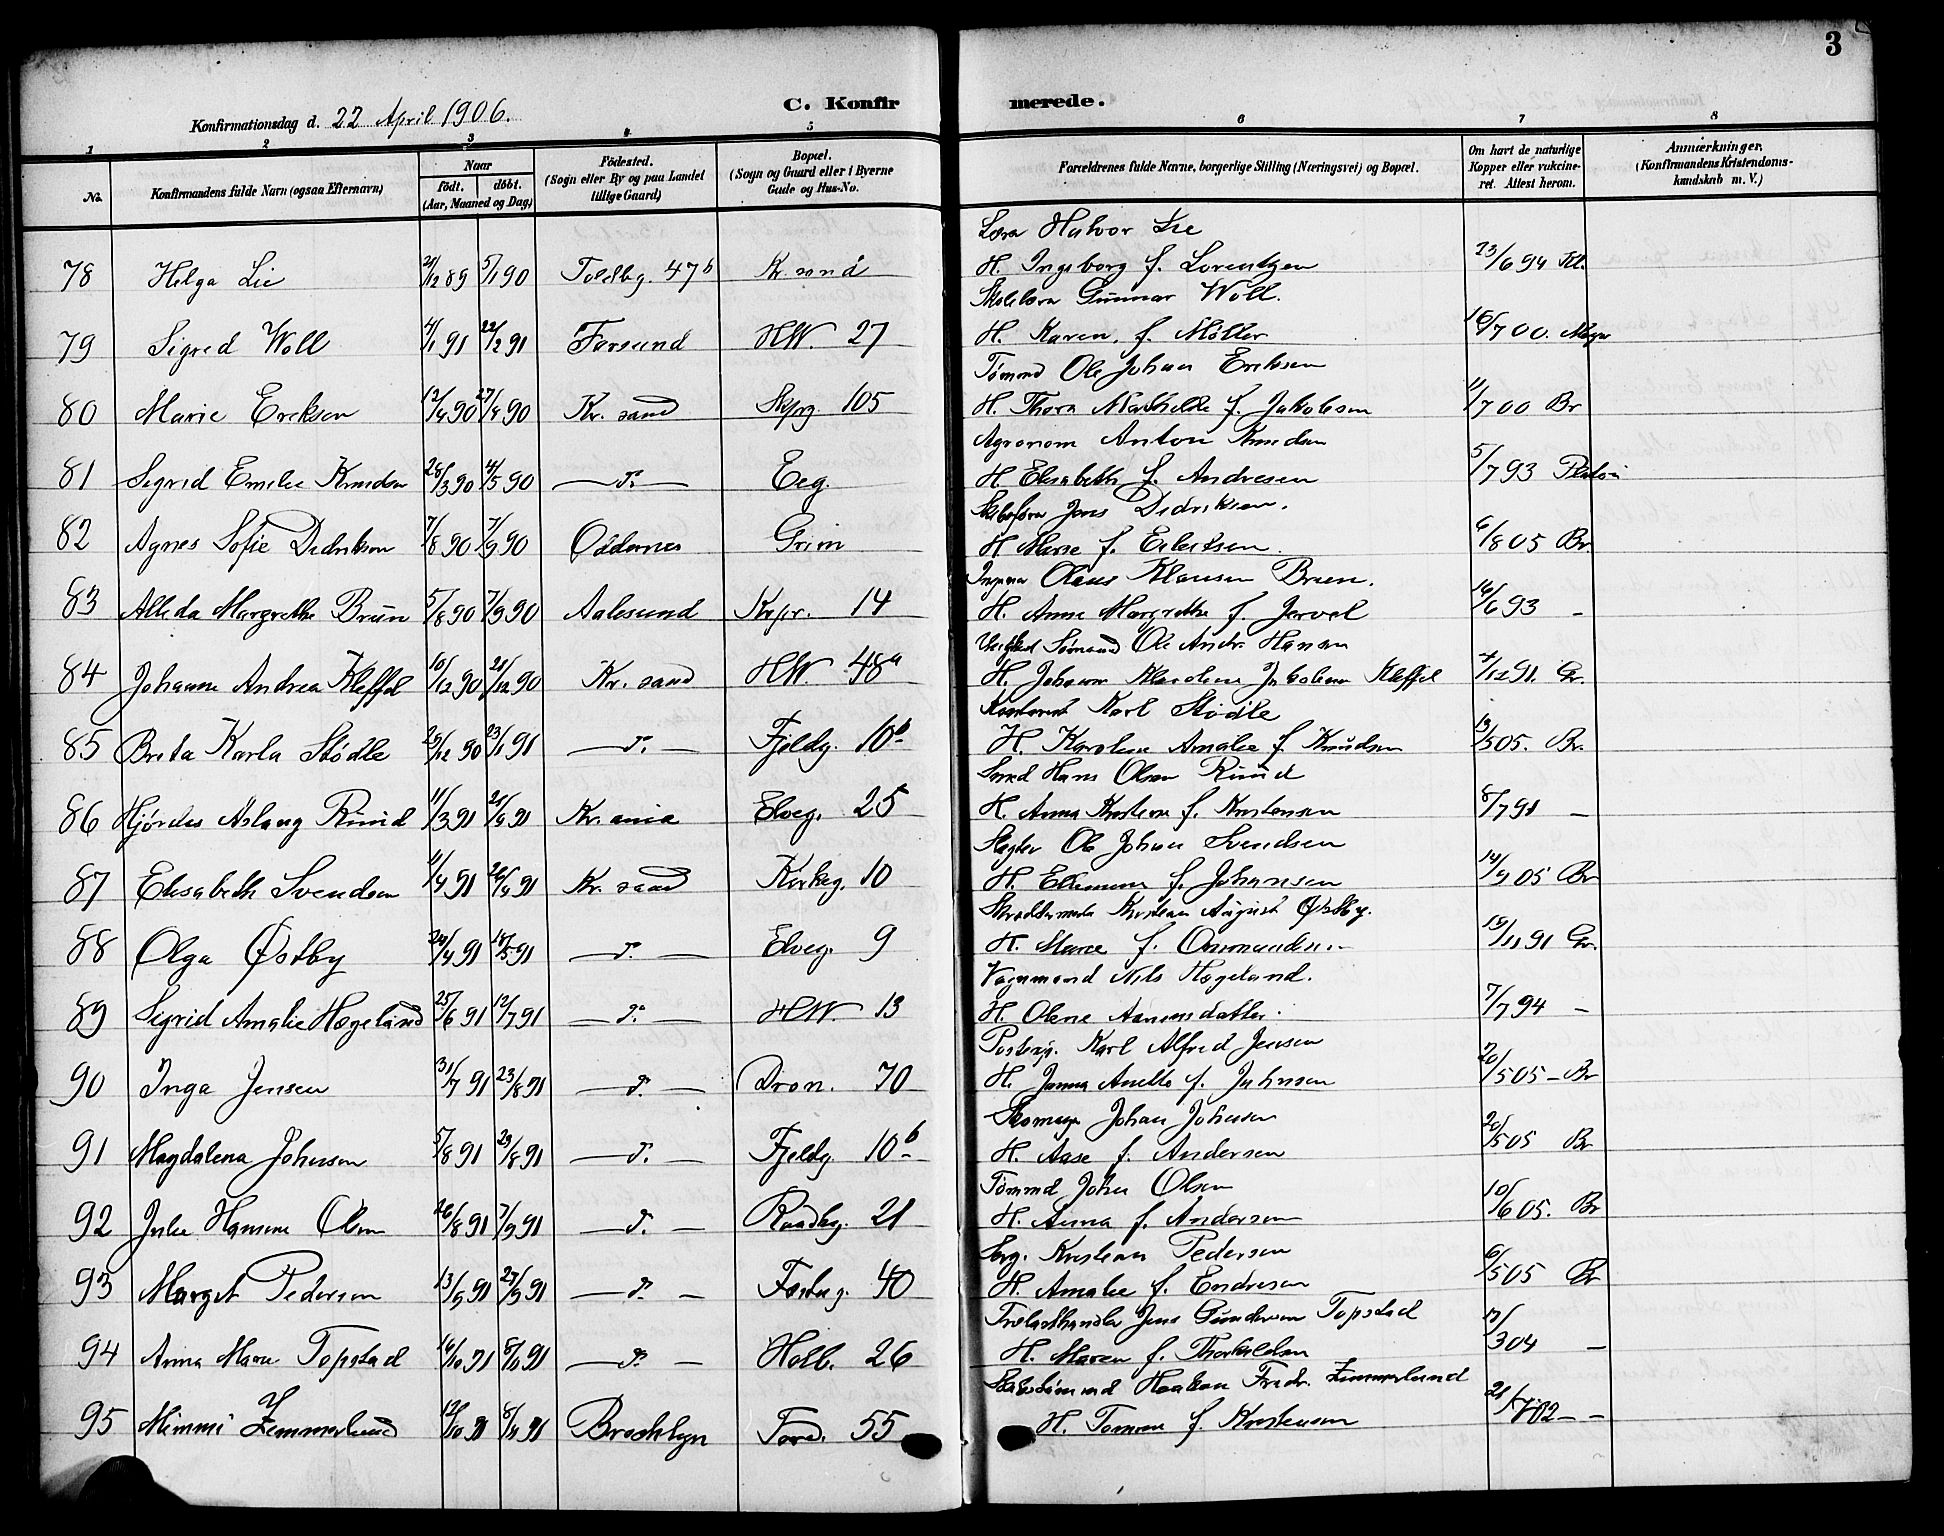 3
C. Konfirmerede.
Konfirmationsdag d. 22 April 1906.
1 2 3 4 5 6 7 8
No. Konfirmandens fulde Navn (ogsaa Efternavn) Naar født. døbt. (Aar, Maaned og Dag) Fødested. (Sogn eller By og paa Landet tillige Gaard) Bopæl. (Sogn og Gaard eller i Byerne Gade og Hus-No. Forældrenes fulde Navne, borgerlige Stilling (Næringsvei) og Bopæl. Om havt de naturlige Kopper eller vakcineret. Attest herom. Anmærkninger. (Konfirmandens Kristendomskundskab m. V.)
Halvor Lie
78 Helga Lie 21/12 89 5/1 90 Toldbg. 47b Kr.sand H. Ingeborg f. Lorentzen 23/6 94
Gunnar Woll.
79 Sigrid Woll 4/1 91 22/2 91 Farsund HW. 27 H. Karen. f. Møller 16/7 00.
Tømmd Ole Johan Eriksen
80 Marie Eriksen 12/4 90 27/4 90 Kr. sand Skpg. 105 H. Thora Mathilde f. Jakobsen 11/7 00 Br
Agronom Anton Knudsen
81 Sigrid Emilie Knudsen 28/3 90 4/5 90 — do. — Eeg. H. Elisabeth f. Andresen 5/7 93
Jens Didriksen.
82 Agnes Sofie Didriksen 7/8 90 7/9 90 Oddernes Grim H. Marie f. Eilertsen. 6/8 05 Br
Olaus Klausen Bruun.
83 Alleda Margrethe Bruun 5/8 90 7/9 90 Aalesund Krpr. 14 H. Anne Margrethe f. Jervel 16/6 93 —
Sømand Ole Andr. Hansen
84 Johanne Andrea Kleffel 10/12 90 21/12 90 Kr. sand HW. 48a H. Johanne Jakobine Kleffel 4/12 91. Gr.
Karl Stødle
85 Brita Karla Stødle 29/12 90 23/1 91 — do. — Fjeldg. 10b H. Karoline Amalie f. Knudsen 13/5 05. Br.
Smed Hans Olsen Ruud
86 Hjørdis Aslaug Ruud 11/3 91 21/4 91 Kr.ania Elveg. 25 H. Anna Kristine f. Kristensen 8/7 91 —
Slagter Ole Johan Svendsen
87 Elisabeth Svendsen 11/4 91 26/4 91 Kr. sand Kirkeg. 10 H. f. Johansen 14/9 05 Br
Skræddermester Kristian August Østby.
88 Olga Østby 24/4 91 18/5 91 — do. — Elveg. 9 H. Marie f. Osmundsen 19/11 91 Gr.
Vognmand Nils Hægeland.
89 Sigrid Amalie Hægeland 25/6 91 12/7 91 — do. — HW. 13 H. Olene Aanensdatter. 7/7 94 —
Karl Alfred Jensen
90 Inga Jensen 31/7 91 23/8 91 — do. — Dron. 70 H. Janna Anette f. Johnsen 20/5 05 — Br
Skomager Johan Johnsen
91 Magdalena Johnsen 5/8 91 23/8 91 — do. — Fjeldg. 10b H. Aase f. Andersen 20/5 05 Br
Tømmd Johan Olsen
92 Julie Hansine Olsen 26/8 91 7/9 91 — do. — Raadhg. 21 H. Anna f. Andersen 10/6 05. Br
Kristian Pedersen
93 Margit Pedersen 13/9 91 27/9 91 — do. — Fæstng. 40 H. Amalie f. Endresen 6/5 05 Br
Trælasthandler Jens Gundersen Topstad
94 Anna Marie Topstad 16/10 91 8/11 91 — do. — Holb. 26 H. Maren f. Thorkildsen 17/3 04 —
Haakon Fredr. Zimmerlund
95 Mimmi Zimmerlund 12/10 91 8/11 91 Brooklyn Tord. 55 H. Tomine f. Kristensen 21/7 02 — —